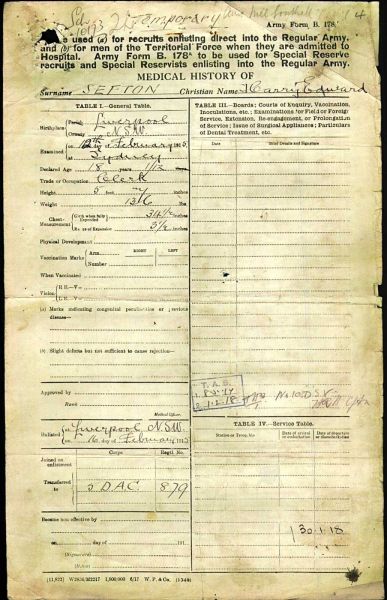 Temporary
Army Form B. 178
To be used (a) for recruits enlisting direct into the Regular Army,
and (b) for men of the Territorial Force when they are admitted to
Hospital. Army Form B. 178A to be used for Special Reserve
recruits and Special Reservists enlisting into the Regular Army.
MEDICAL HISTORY OF
Surname SEFTON Christian Name Harry Edward
TABLE I.—General Table.
Birthplace Parish Liverpool
County N.S.W.
Examined on 12th day of February 1915
at Sydney
Declared Age 18
Trade or Occupation Clerk
Height 5 feet 7
Weight 136 lbs
Chest Measurement Girth when fully Expanded 34 1/2 inches
Range of Expansion 3 1/2 inches
Physical Development
Vaccination Marks Arm RIGHT LEFT
Number
When Vaccinated
Vision R.E.—V=
L.E.—V=
(a) Marks indicating congenital peculiarities or previous
disease—
(b) Slight defects but not sufficient to cause rejection—
Approved by
Rank
Medical Officer.
Enlisted at Liverpool N.S.W.
on 16 day of February 1915
Corps Regtl. No.
Joined on enlistment
Transferred to 2 D.A.C 879
Became non-effective by
on day of 191
(Signature)
TABLE III.—Boards; Courts of Enquiry, Vaccination,
Inoculations, etc.; Examinations for Field or Foreign
Service, Extension, Re-engagement, or Prolongation
of Service; Issue of Surgical Appliances; Particulars
of Dental Treatment, etc.
Date Brief Details and Signature
T.A.B.
TABLE IV.—Service Table.
Station or Troop Date of arrival or embarkation Date of departure or disembarkation
30.1.18